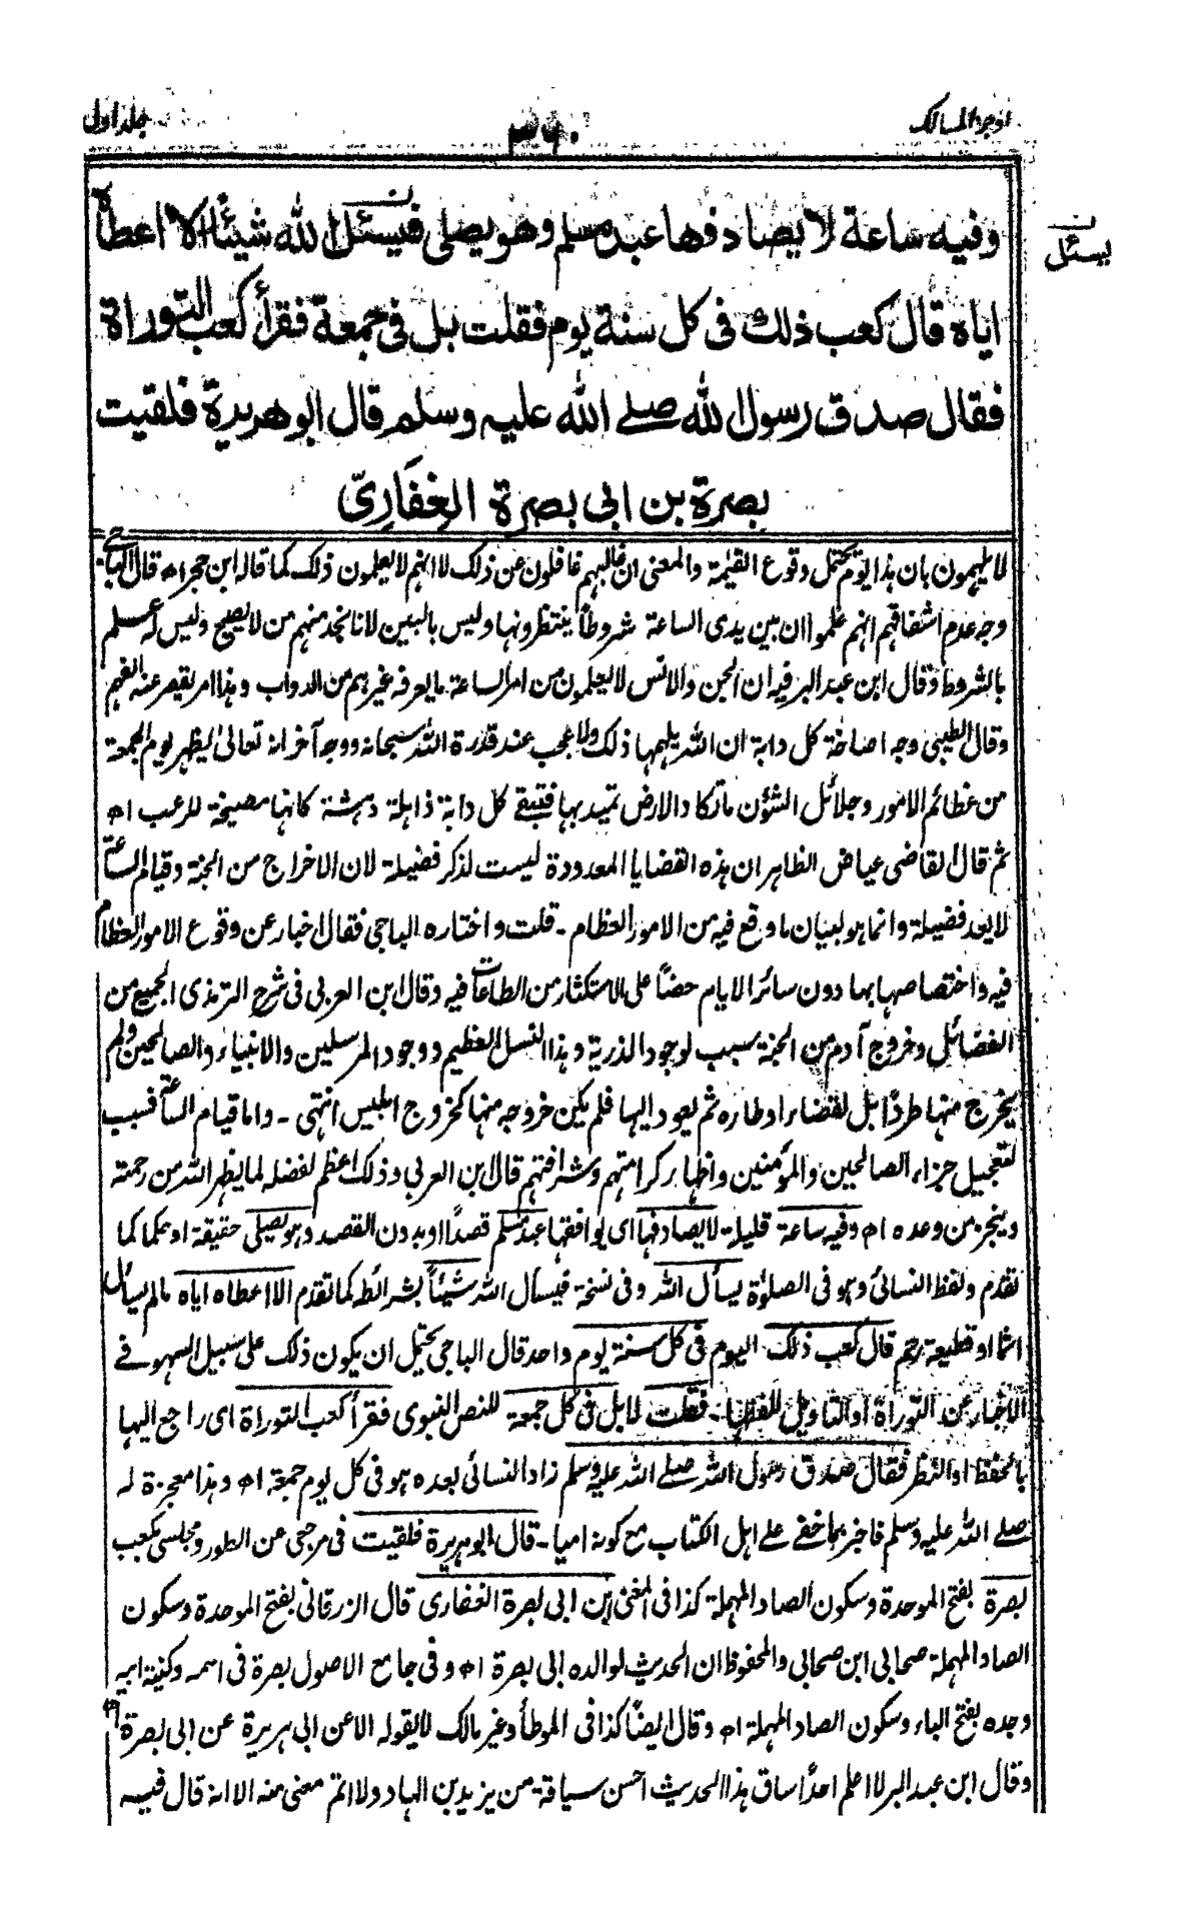 اوجز المسالك
٣٤٠
جلد اول
وفيه ساعة لا يصادفها عبد مسلم وهو يصلى فيسئل الله شيئًا الا اعطاه
ن
يسئل
اياه قال كعب ذلك فى كل سنة يوم فقلت بل فى جمعة فقرأ كعب التوراة
فقال صدق رسول الله صلے الله عليه وسلم قال ابو هريرة فلقيت
بصرة بن ابى بصرة الغِفَارِىّ
لا يلهمون بان هذا اليوم يحتمل وقوع القيٰمة والمعنى ان غالبهم غافلون عن ذلك لا انهم لا يعلمون ذلك كما قاله ابن حجر اھ قال الباجى
وجه عدم اشفاقهم انهم علموا ان بين يدى الساعة شروطاً ينتظرونها وليس بالبين لانا نجد منهم من لا يصيح وليس له علم
بالشروط وقال ابن عبد البر فيه ان الجن والانس لا يعلمون من امر الساعة ما يعرفه غيرهم من الدواب وهذا امر يقصر عنه الفهم
وقال الطيبى وجه اصاخة كل دابة ان الله يلهمها ذلك ولا عجب عند قدرة الله سبحانه ووجه آخر انه تعالىٰ يظهر يوم الجمعة
من عظائم الامور وجلائل الشؤن ما تكاد الارض تميد بها فتبقے كل دابة ذاهلة دهشة كانها مصيخة للرعب اھ
ثم قال القاضى عياض الظاهر ان هذه القضايا المعدودة ليست لذكر فضيلة لان الاخراج من الجنة وقيام الساعة
لا يعد فضيلة وانما هو لبيان ما وقع فيه من الامور العظام ـ قلت واختاره الباجى فقال اخبار عن وقوع الامور العظام
فيه واختصاصها بها دون سائر الايام حضاً على الاستكثار من الطاعات فيه وقال ابن العربى فى شرح الترمذى الجميع من
الفضائل وخروج آدم من الجنة بسبب لوجود الذرية وهذا النسل العظيم ووجود المرسلين والانبياء والصالحين ولم
يخرج منها طردًا بل لقضاء اوطاره ثم يعود اليها فلم يكن خروجه منها كخروج ابليس انتهى ـ واما قيام الساعة فسبب
لتعجيل جزاء الصالحين والمؤمنين واظهار كرامتهم وشرافتهم قال ابن العربى وذلك اعظم لفضله لما يظهر الله من رحمته
وينجز من وعده اھ وفيه ساعة قليلة لا يصادفها اى يوافقها عبد مسلم قصدًا او بدون القصد وهو يصلى حقيقة او حكما كما
تقدم ولفظ النسائى وهو فى الصلوٰة يسأل الله وفى نسخة فيسأل الله شيئاً بشرائطه كما تقدم الا اعطاه اياه ما لم يسأل
اثما او قطيعة رحم قال كعب ذلك اليوم فى كل سنة يوم واحد قال الباجى يحتمل ان يكون ذلك على سبيل السهو فے
الاخبار عن التوراة او التاويل للفظها ـ فقلت لا بل فى كل جمعة للنص النبوى فقرأ كعب التوراة اى راجع اليها
بالحفظ او النظر فقال صدق رسول الله صلے الله عليه وسلم زاد النسائى بعده هو فى كل يوم جمعة اھ وهذا معجزة له
صلے الله عليه وسلم فاخبر بما خفے علے اهل الكتاب مع كونه اميا ـ قال ابو هريرة فلقيت فى مرجعى عن الطور ومجلسى بكعب
بصرة بفتح الموحدة وسكون الصاد المهملة كذا فى المغنى ابن ابى بصرة الغفارى قال الزرقانى بفتح الموحدة وسكون
الصاد المهملة صحابى ابن صحابى والمحفوظ ان الحديث لوالده ابى بصرة اھ وفى جامع الاصول بصرة فى اسمه وكنية ابيه
وجده بفتح الباء وسكون الصاد المهملة اھ وقال ايضًا كذا فى الموطأ وغير مالك لا يقوله الا عن ابى هريرة عن ابى بصرة اھ
وقال ابن عبد البر لا اعلم احدًا ساق هذا الحديث احسن سياقة من يزيد بن الهاد ولا اتم معنى منه الا انه قال فيه